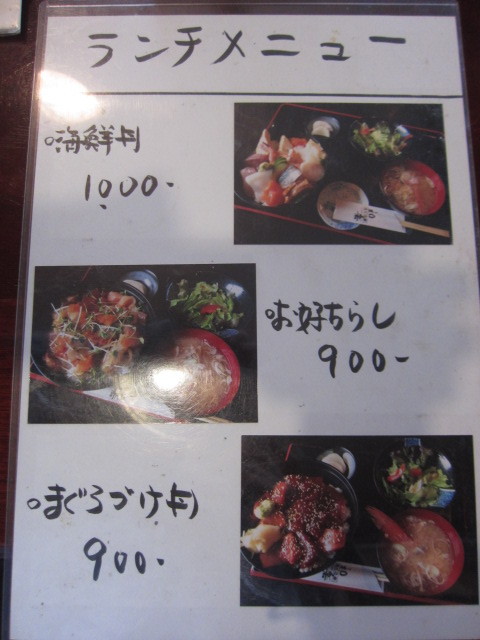 ランチメニュー
○海鮮丼
1,000-
○お好ちらし
900-
○まぐろづけ丼
900-